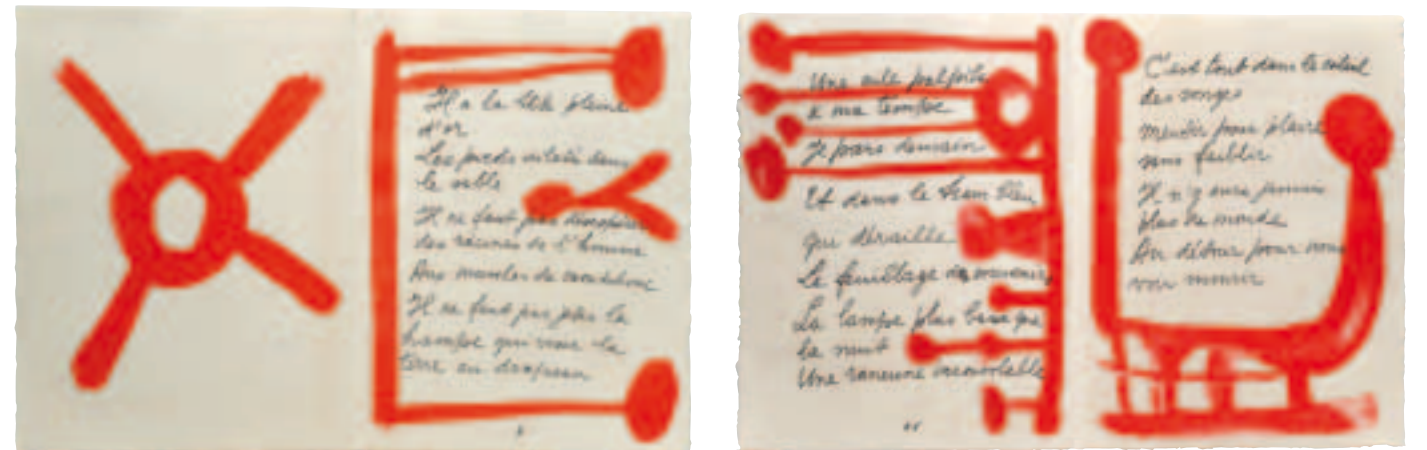 Il a la tête pleine
d'or
Les pieds
le sable
Il ne faut pas
des racines de l'homme
Aux
Il ne faut pas
hampe qui
terre au drapeau
Une aile palpite
à ma tempe
Je pars demain
Et dans le train bleu
qui déraille
Le feuillage des
La lampe plus basse que
la nuit
Une rancune inconsolable
C'est tout dans le soleil
des songes
mentir pour plaire
sans faiblir
Il n'y aura jamais
plus de monde
Au détour pour nous
voir mourir